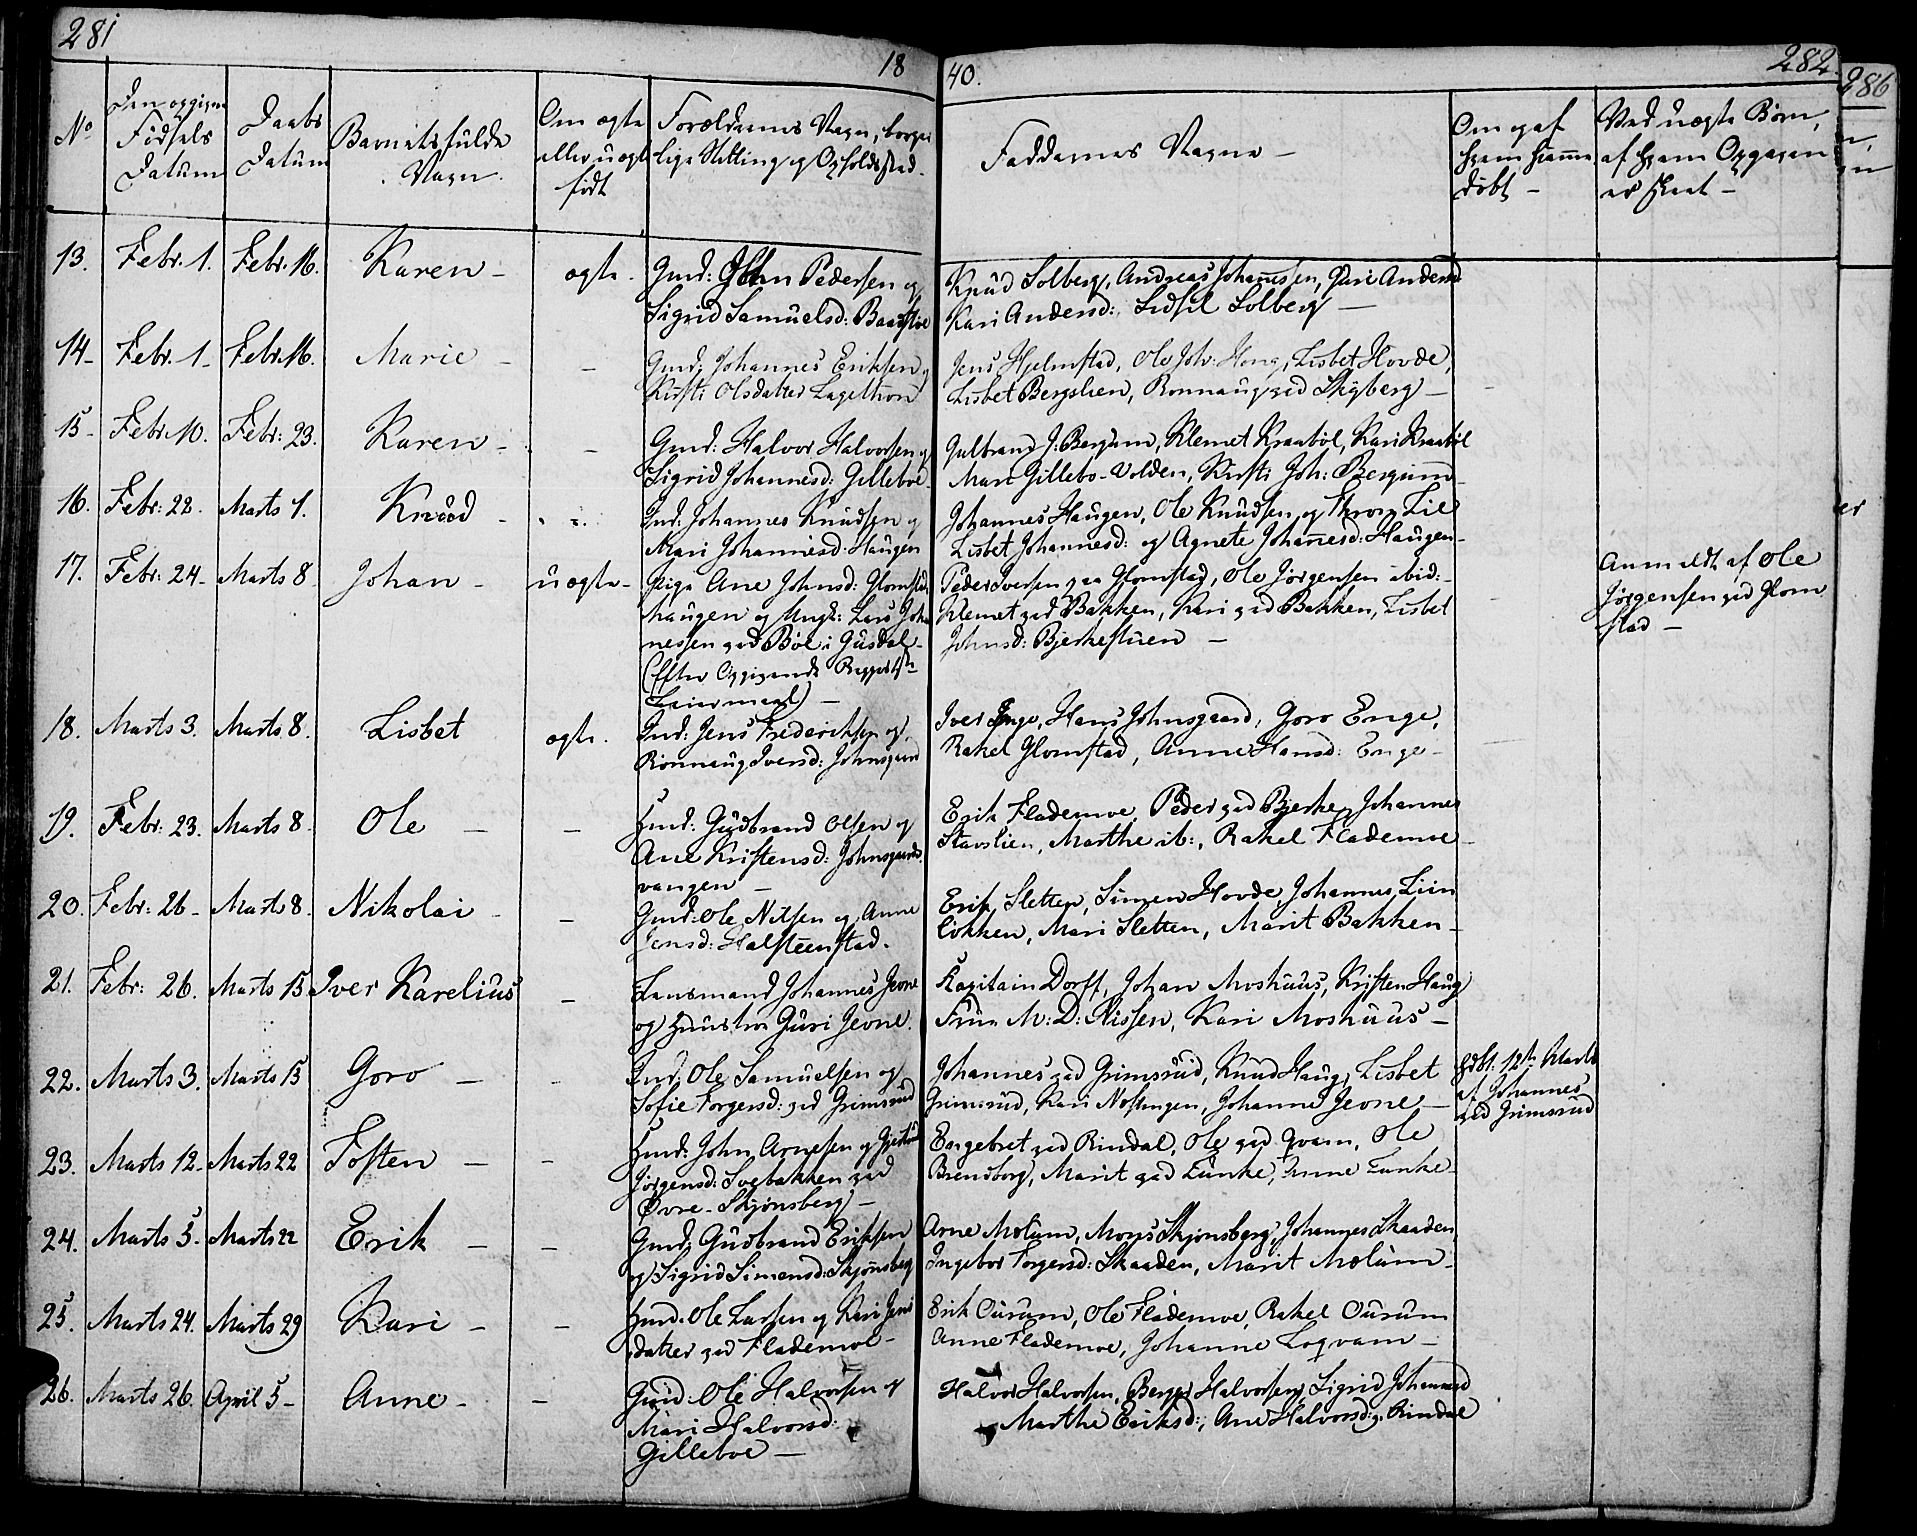 281
18
40.
282
286
No
Den opgivne Fødsels Datum
Daabs Datum
Barnets fulde Navn.
Om ægte eller uægte født
Forældrenes Navn, borgerlige Stilling og Opholdssted.
Faddernes Navne –
Om og af hvem hjemmedøbt –
Ved uægte Børn, af hvem Opgaven er skeet –
13. Febr. 1. Febr. 16. Karen – ægte. Gmd: John Pedersen og
Sigrid Samuelsd: Baarstve
Knud Solberg, Andreas Johannessen, Guri Andersd
Kari Andersd:, Sidsel Solberg –
14 – Febr. 1 – Febr. 16. Marie – – Gmd: Johannes Eriksen og
Kirsti Olsdatter
Jens Hjelmstad, Ole Joh: Lisbet Hovde,
Lisbet Bergslien, Ronnaug ved Skyberg –
15 – Febr. 10. Febr: 23. Karen – – Gmd: Halvor Halvorsen og
Sigrid Johannesd: Gilleboe
Gulbrand J. Bergum, Klemet Kraabøl, Kari Kraabøl
Mari Gillebo-Volden, Kirsti Joh: Bergum
16. Febr: 22. Marts 1. Knud – Ind: Johannes Knudsen og
Mari Johannesd: Haugen
Johannes Haugen, Ole Knudsen og Thron Lie
Lisbet Johannesd: og Agnete Johannesd: Haugen –
17. Febr: 24 – Marts 8. Johan – uægte – Pige Ane Johnsd: Glomstad
haugen og Ungk: Lars Joha
nessen ved Bøe i Gusdal –
(Efter Opgivende
Leiermaal) –
Peder Iversen paa Glomstad, Ole Jørgensen ibid: –
Klemet ved Bakken, Kari ved Bakken, Lisbet
Johnsd: Bjerkestuen –
Anmeldt af Ole
Jørgensen ved Glom
stad –
18. Marts 3. Marts 8. Lisbet ægte. Ind: Jens Frederiksen og
Ronnaug Iversd: Johnsgaard
Iver Enge, Hans Johnsgaard, Goro Enge,
Rakel Glomstad, Anne Hansd: Enge –
19. Febr: 23. Marts 8. Ole – – Hmd: Gudbrand Olsen og
Ane Kristensd: Johnsgaards
vangen –
Erik Flademoe, Peder ved Bjerke, Johannes
Stavslien, Marthe ib:, Rakel Flademoe –
20. Febr: 26 – Marts 8. Nikolai – – Gmd: Ole Nilsen og Anne
Jensd: Halsteenstad.
Erik Sletten, Simen Hovde, Johannes Liin
løkken, Mari Sletten, Marit Bakken –
21. Febr: 26. Marts 15 Iver Karelius – Lensmand Johannes Jevne
og Hustro Guri Jevne.
Kapitain Dorff, Johan Moshuus, Kristen Haug
Frue M: D: Nissen, Kari Moshuus –
22. Marts 3. Marts 15 Goro – – Ind: Ole Samuelsen og
Sofie Torgersd: ved Grimsrud
Johannes ved Grimsrud, Knud Haug, Lisbet
Grimsrud, Kari Johanne Jevne –
Hdbt: 12te Marts
af Johannes
ved Grimsrud
23. Marts 12 – Marts 22 Tosten – – Hmd: John Arnesen og
Jørgensd: Svebakken ved
Øvre-Skjønsberg –
Engebret ved Rindal, Ole ved Qvam, Ole
Brendborg, Marit ved Lunke, Anne Lunke –
24. Marts 5 – Marts 22 Erik – – Gmd: Gudbrand Eriksen
og Sigrid Simensd: Skjønsberg
Arne Molum, Mons Skjønsberg, Johannes Skaaden
Ingebor Torgersd: Skaaden, Marit Molum –
25. Marts 24. Marts 29 Kari – – Hmd: Ole Larsen og Kari Jens
datter ved Flademoe –
Erik Ourum, Ole Flademoe, Rakel Ourum
Anne Flademoe, Johanne Loqvam –
26. Marts 26. April 5 – Anne – – Gmd: Ole Halvorsen og
Mari Halvorsd:
Gilleboe –
Halvor Halvorsen, Berger Halvorsen, Sigrid Johannesd
Marthe Eriksd:, Ane Halvorsd: Rindal